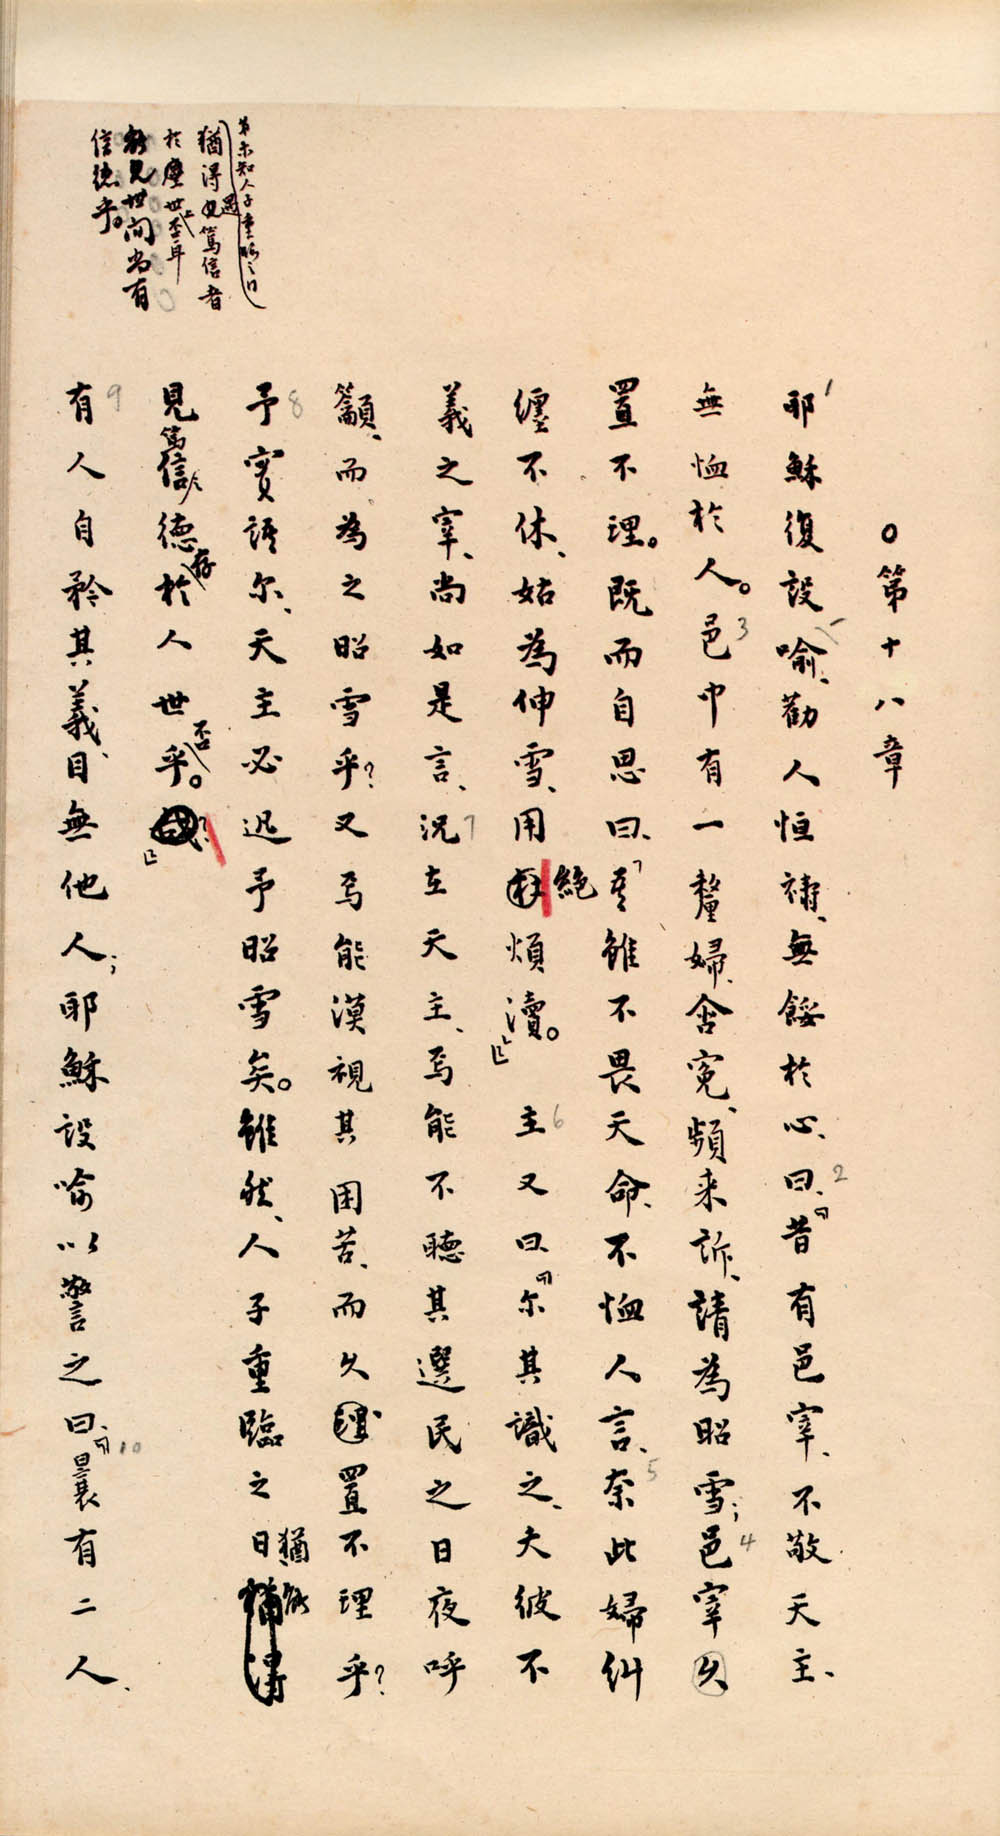 。第十八章
耶穌復設喻、勸人恒禱、無餒於心、曰、「昔有邑宰、不敬天主、
無恤於人。邑中有一嫠婦、含冤、頻來訴、請為昭雪；邑宰久
置不理。既而自思曰、「吾雖不畏天命、不恤人言、奈此婦糾
纏不休、姑為伸雪、用絕煩瀆。」主又曰、「尔其識之、夫彼不
義之宰、尚如是言、況在天主、焉能不聽其選民之日夜呼
籲、而為之昭雪乎？又焉能漠視其困苦、而久置不理乎？
予實語尔、天主必迅予昭雪矣。雖然、人子重臨之日、猶能
見篤信之德存於人世否乎。？」
有人自矜其義、目無他人；耶穌設喻以警之曰、「曩有二人、
第未知人子重臨之日
猶得遇篤信者
於塵世上否耳
能見世間尚有
信德乎。
1
2
3
4
5
6
7
8
9
10